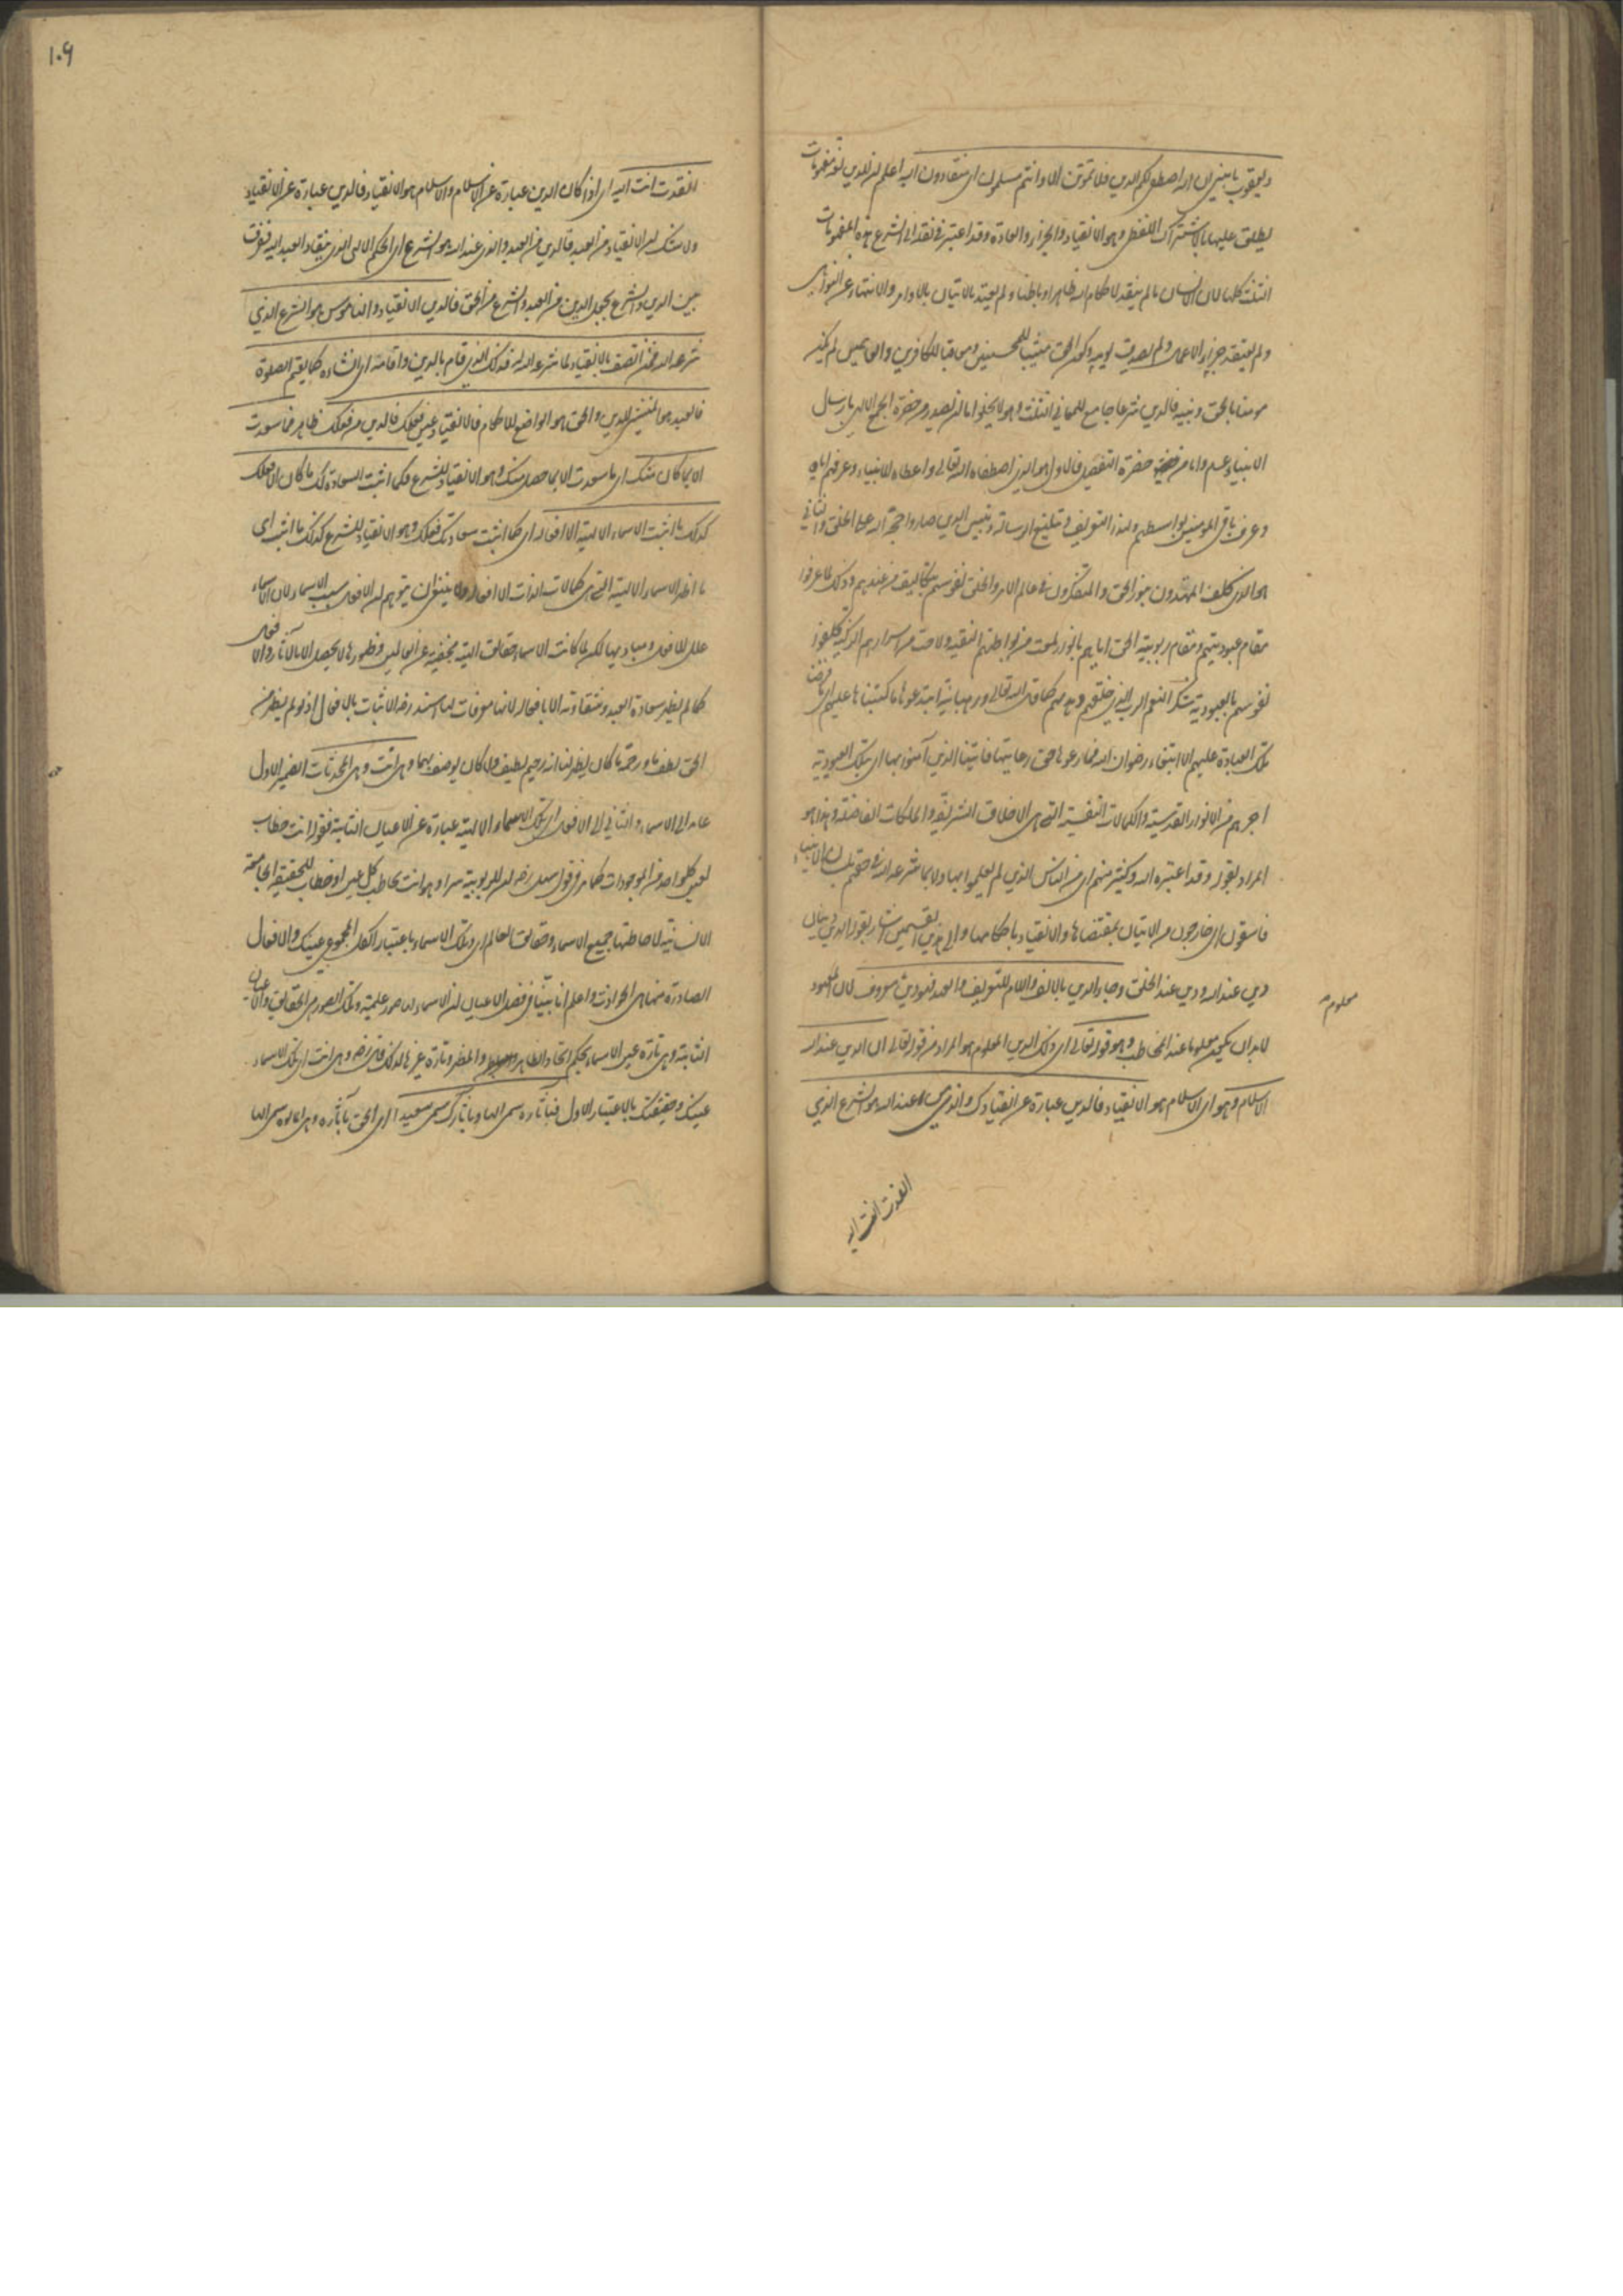 ويعقوب يا بنى ان الله اصطفى لكم الدين فلا تموتن الا وانتم مسلمون اى منقادون اليه اعلم ان للدين لغة مفهومات
يطلق عليها بالاشتراك اللفظى وهو الانقياد والجزاء والعادة وقد اعتبر فى نقله الى الشرع هذه المفهومات
الثلث كلها لان الانسان ما لم ينقد لاحكام الله ظاهرا وباطنا ولم يعتد بالاتيان بالاوامر والانتهاء عن النواهى
ولم يعتقد جزاء الاعمال ولم يصدق بيوم كون الحق مثيبا للمحسنين ومعاقبا للكافرين والعاصين لم يكن
مومنا بالحق ونبيه فالدين شرعا جامع للمعانى الثلث وهو لا يخلو اما ان يصدر من حضرة الجمع الالهى بارسال
الانبياء عليهم واما من حضرة التفصيل فالاول هو الذى اصطفاه الله تعالى واعطاه للانبياء وعرفهم اياه
وعرف باقى المومنين بواسطتهم ولهذا التعريف وتبليغ الرسالة وتبيين الدين صاروا حجة الله على الخلق والثانى
هو الذى كلف المهتدون بنور الحق والمتفكرون فى عالم الامر والخلق نفوسهم بتكاليف من عندهم وذلك لما عرفوا
مقام عبوديتهم ومقام ربوبية الحق اياهم بالنور لمعت من بواطنهم النقية ولاحت من اسرارهم الزكية كلفوا
نفوسهم بالعبودية شكر النعم الرب الذى خلقهم وهديهم كما قال الله تعالى ورهبانية ابتدعوها ما كتبناها عليهم اى ما فرضنا
تلك العبادة عليهم الا ابتغاء رضوان الله فما رعوها حق رعايتها فاتينا الذين آمنوا بها اى بتلك العبودية
اجرهم من الانوار القدسية والكمالات النفسية التى هى الاخلاق الشريفة والملكات الفاضلة وهذا هو
المراد بقوله وقد اعتبره الله وكثير منهم اى من الناس الذين لم يعملوا بها ولا بما شرعه الله فى حقهم بلسان الانبياء
فاسقون اى خارجون من الاتيان بمقتضاها والانقياد باحكامها والى هذين القسمين اشار بقوله الدين دينان
دين عند الله ودين عند الخلق وجاء الدين بالالف واللام للتعريف والعهد فهو دين معروف لان المعهود
معلوم
لا بد ان يكون معلوما عند المخاطب وهو قوله تعالى اى ذلك الدين المعلوم هو المراد من قوله تعالى ان الدين عند الله
الاسلام وهو اى الاسلام هو الانقياد فالدين عبارة عن انقيادك والذى من عند الله هو الشرع الذى
انقدت انت اليه
١٠٩
انقدت انت اليه اى اذا كان الدين عبارة عن الاسلام والاسلام هو الانقياد فالدين عبارة عن الانقياد
ولا شك ان الانقياد من العبد فالدين من العبد والذى عند الله هو الشرع اى الحكم الالهى الذى ينقاد العبد اليه ففرق
بين الدين والشرع بجعل الدين من العبد والشرع من الحق فالدين الانقياد والناموس هو الشرع الذى
شرعه الله فمن اتصف بالانقياد لما شرعه الله له فذلك الذى قام بالدين واقامه اى انشاه كما يقيم الصلوة
فالعبد هو المنشى للدين والحق هو الواضع للاحكام فالانقياد عين فعلك فالدين من فعلك ظاهر فما سعدت
الا بما كان منك اى ما سعدت الا بما حصل منك وهو الانقياد للشرع فكما اثبت السعادة لك ما كان فعلك
كذلك ما اثبت الاسماء الالهية الا افعاله اى كما اثبت سعادتك فعلك وهو الانقياد للشرع كذلك ما اثبت اى
ما اظهر الاسماء الالهية التى هى كمالات الذات الا افعاله ولا ينبغى ان يتوهم ان الافعال سبب الاسماء لان الاسماء
علل للافعال ومباديها لكن لما كانت الاسماء حقايق الهية مخفية عن العالمين وظهورها لا يحصل الا بالآثار والافعال
كما لم يظهر سعادة العبد وشقاوته الا بافعاله لانها معرفات لها اسند رضه الاثبات بالافعال اذ لو لم يظهر من
الحق لطفا ورحمة ما كان يظهر لنا انه رحيم لطيف ولا كان يوصف بهما وهى انت وهى المحدثات الضمير الاول
عايد الى الاسماء والثانى الى الافعال اى تلك الاسماء الالهية عبارة عن الاعيان الثابتة فقوله انت خطاب
لعين كل واحد من الموجودات كما مر فى قول سهل رضه ان للربوبية سرا وهو انت يخاطب كل عين او خطاب للحقيقة الجامعة
الانسانية لاحاطتها جميع الاسماء وحقايق العالم اى وتلك الاسماء باعتبار الكل المجموعى عينك والافعال
الصادرة منها هى الحوادث واعلم انا بينا فى فصل الاعيان ان الاسماء لها صور علمية وتلك الصور هى الحقايق والاعيان
الثابتة وهى تارة عين الاسماء بحكم اتحاد الظاهر والمظهر وتارة غيرها لذلك قال رضه وهى انت اى تلك الاسماء
عينك وحقيقتك بالاعتبار الاول فبآثاره سمى الها وبآثارك سميت سعيدا اى الحق بآثاره وهى المالوه سمى الها